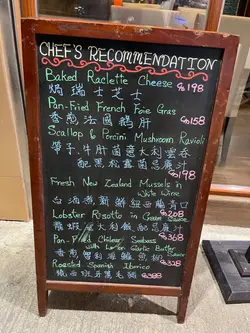 CHEF'S RECOMMENDATION
Baked Raclette Cheese $198
焗瑞士芝士
Pan-Fried French Foie Gras
香煎法國鵝肝 $158
Scallop & Porcini Mushroom Ravioli
帶子牛肝菌意大利雲吞
配黑松露菌忌廉汁
$198
Fresh New Zealand Mussels in
White Wine
白酒煮新鮮紐西蘭青口
$208
Lobster Risotto in Cream Sauce
龍蝦意大利飯配忌廉汁
$368
Pan-Fried Chilean Seabass
with Lemon Garlic Butter
Sauce
香煎智利海鱸魚柳
$338
Roasted Spanish Iberico
燒西班牙黑毛豬 $388